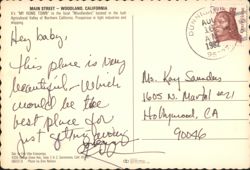 MAIN STREET - WOODLAND, CALIFORNIA
It's "MY HOME TOWN" to the local "Woodlanders" located in the lush
Agricultural Valley of Northern California. Prosperous in light industries and
shipping.
Hey baby,
This place is very
beautiful - Which
would be the
best place for
just getting away
AUG
1982
Ms. Kay Saunders
1605 N. Martel #21
Hollywood, CA
90046